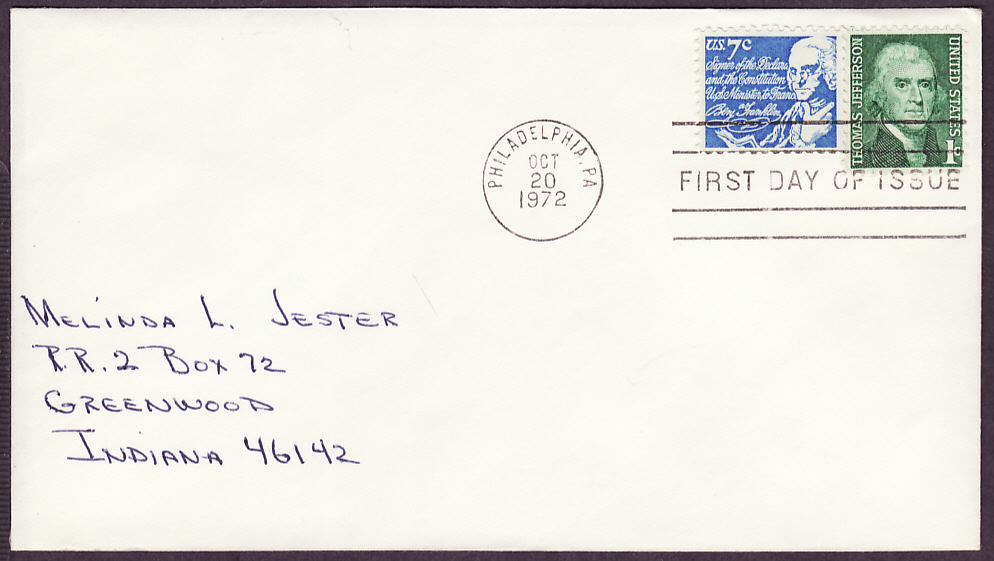 U.S. 7c
Signer of the Declara
and the Constitution
U.S. Minister to Franc
Benj Franklin
THOMAS JEFFERSON
UNITED STATES
1c
PHILADELPHIA, PA
OCT
20
1972
FIRST DAY OF ISSUE
MELINDA L. JESTER
R.R. 2 BOX 72
GREENWOOD
INDIANA 46142